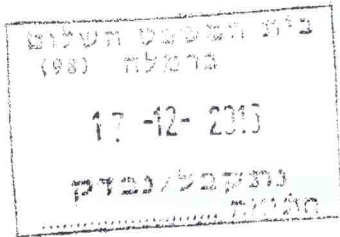 בית המשפט השלום
ברמלה (98)
17 -12- 2013
נתקבל/נבדק
חתימה ..................